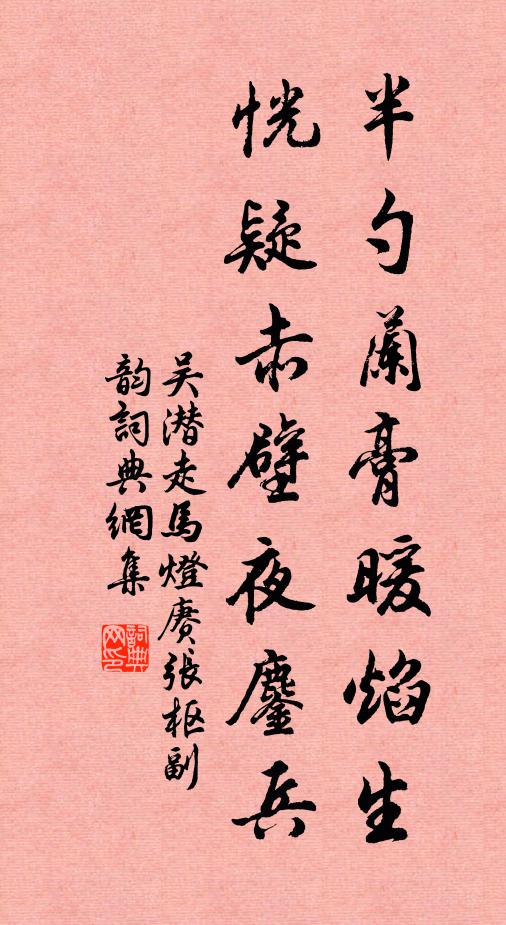 半勺蘭膏暖焰生
恍疑赤壁夜鏖兵
吴潜走馬燈賡張枢副
韵詞典網集
詞典
网印